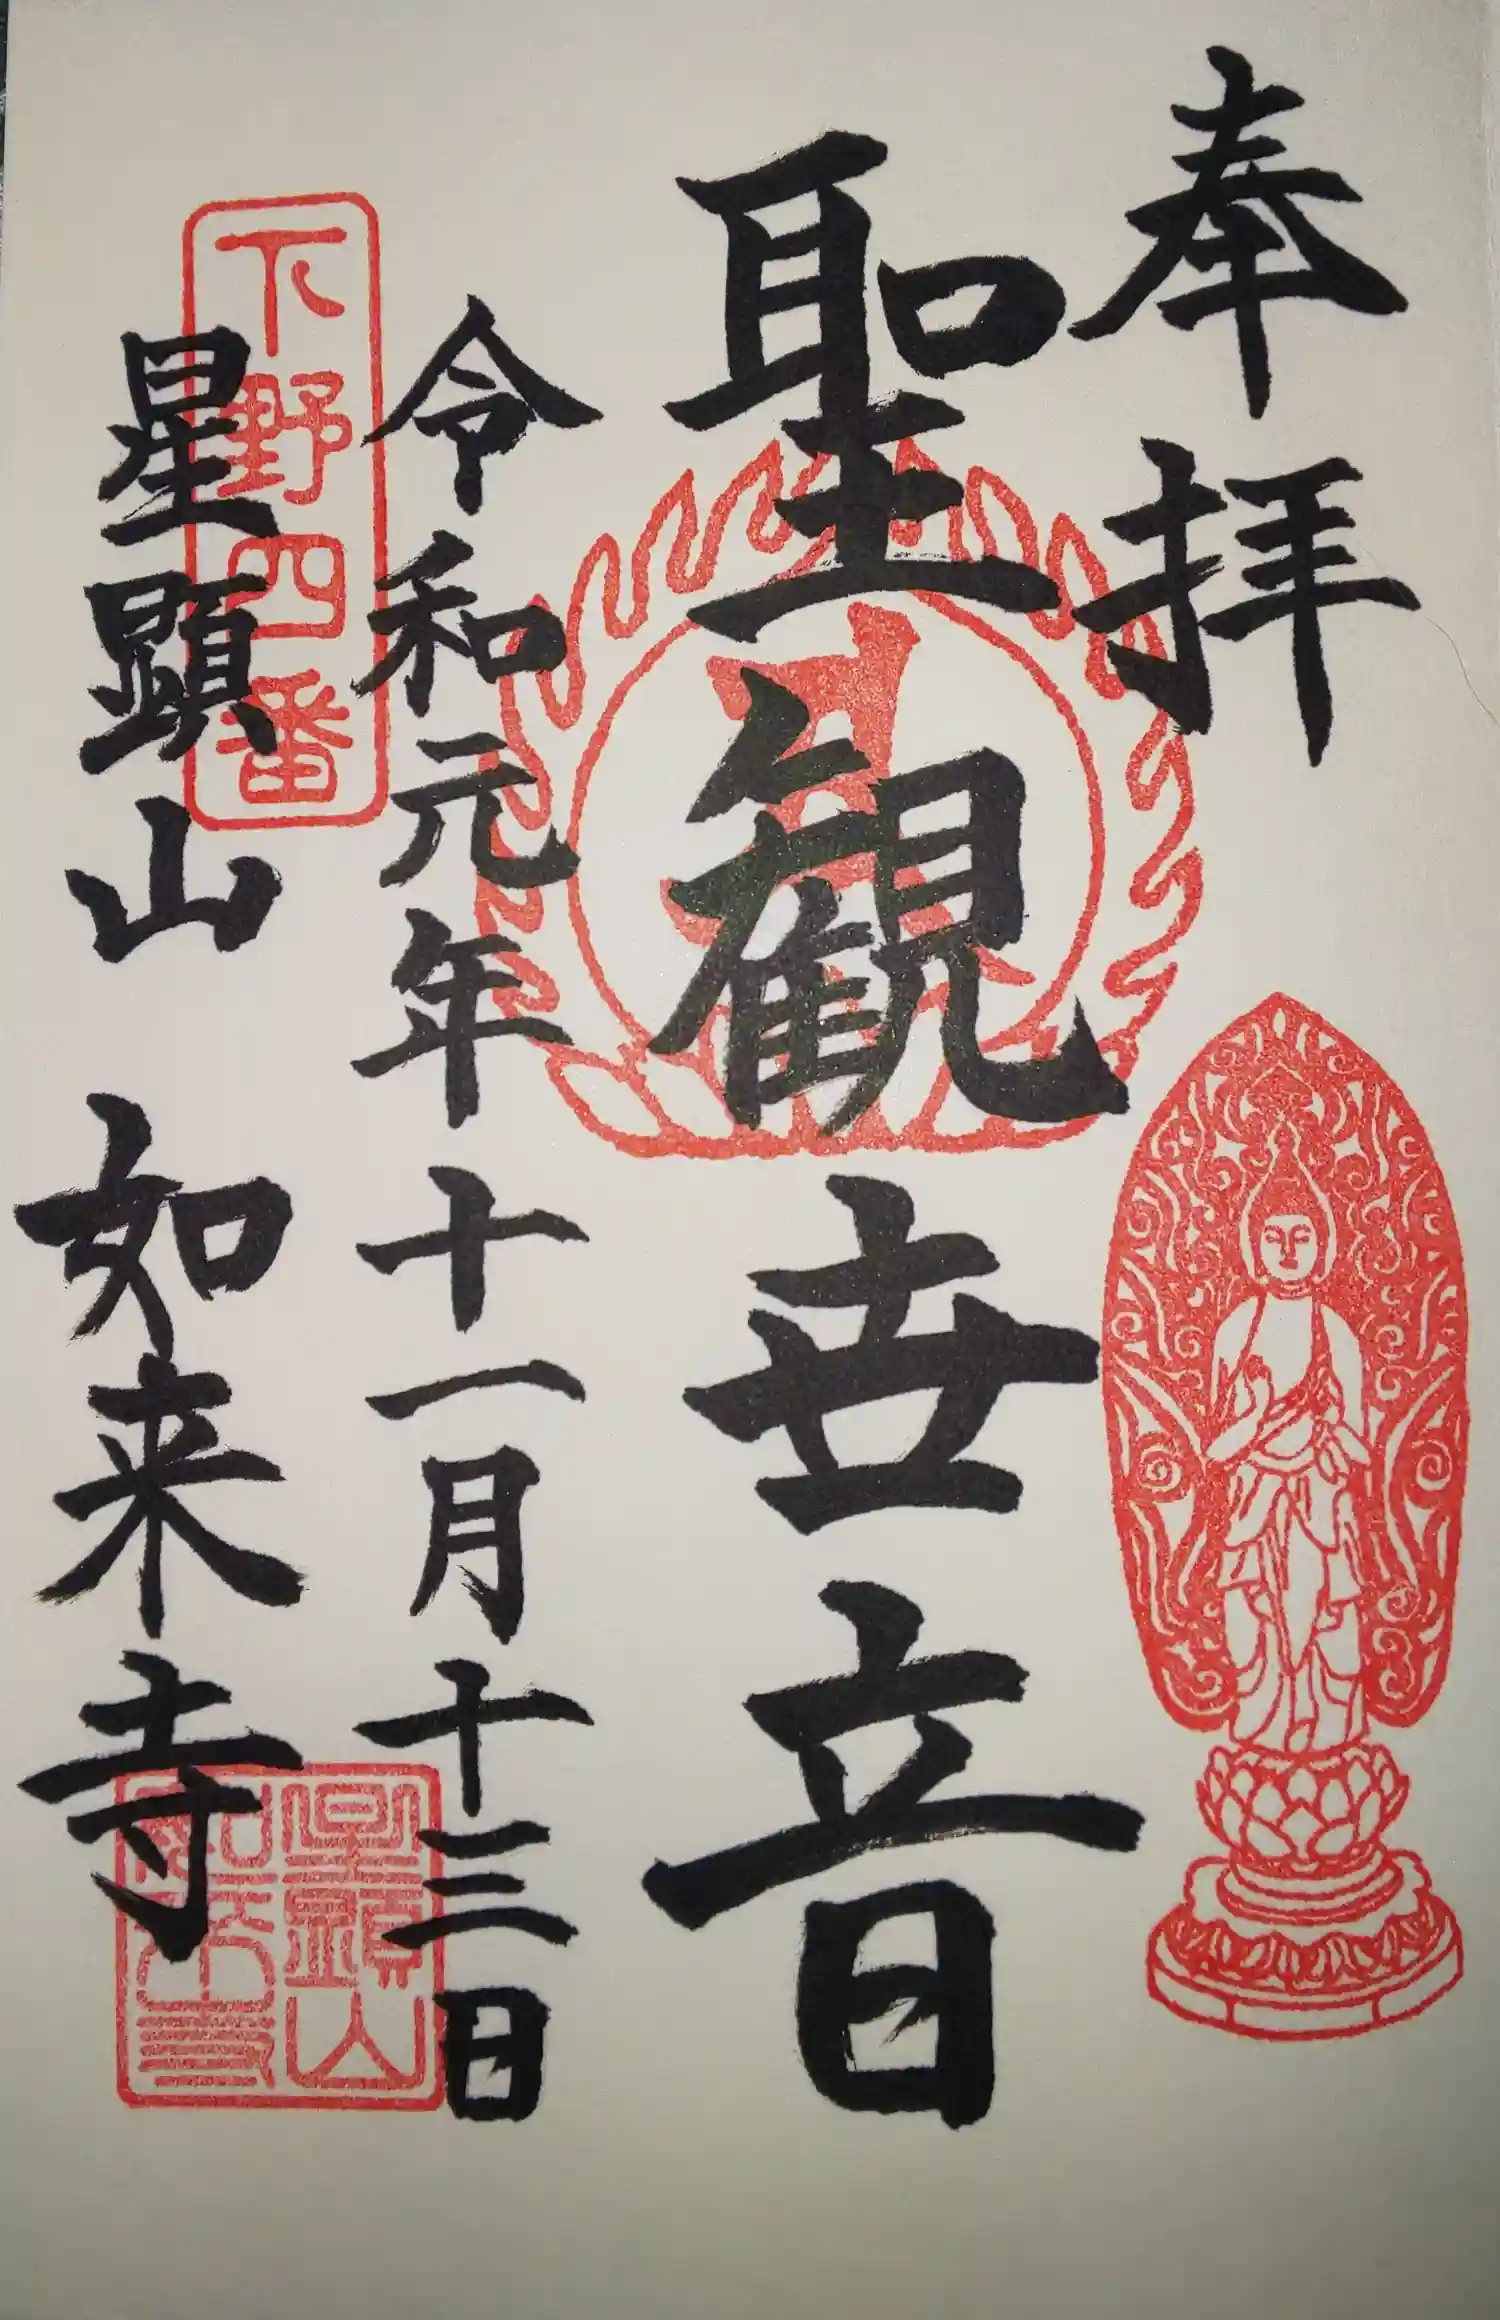 奉拝
聖観世音
令和元年十一月十三日
下野四番
星顕山 如来寺